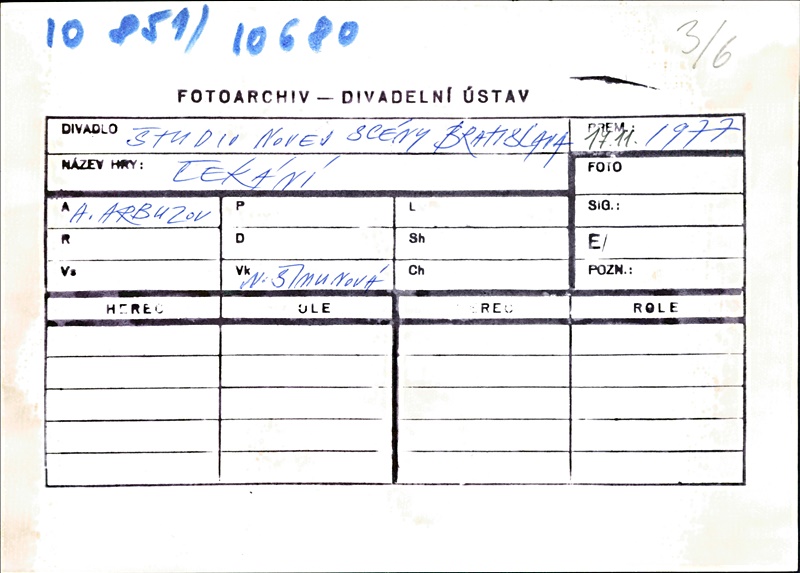 10 851/ 10680
3/6
FOTOARCHIV — DIVADELNÍ ÚSTAV
DIVADLO ŠTUDIO NOVEJ SCÉNY BRATISLAVA PREM.: 17.11. 1977
NÁZEV HRY: ČEKÁNÍ FOTO
A A. ARBUZOV P L SIG.:
R D Sh E/
Vs Vk N. ŠIMUNOVÁ Ch POZN.:
HEREC OLE EREC ROLE